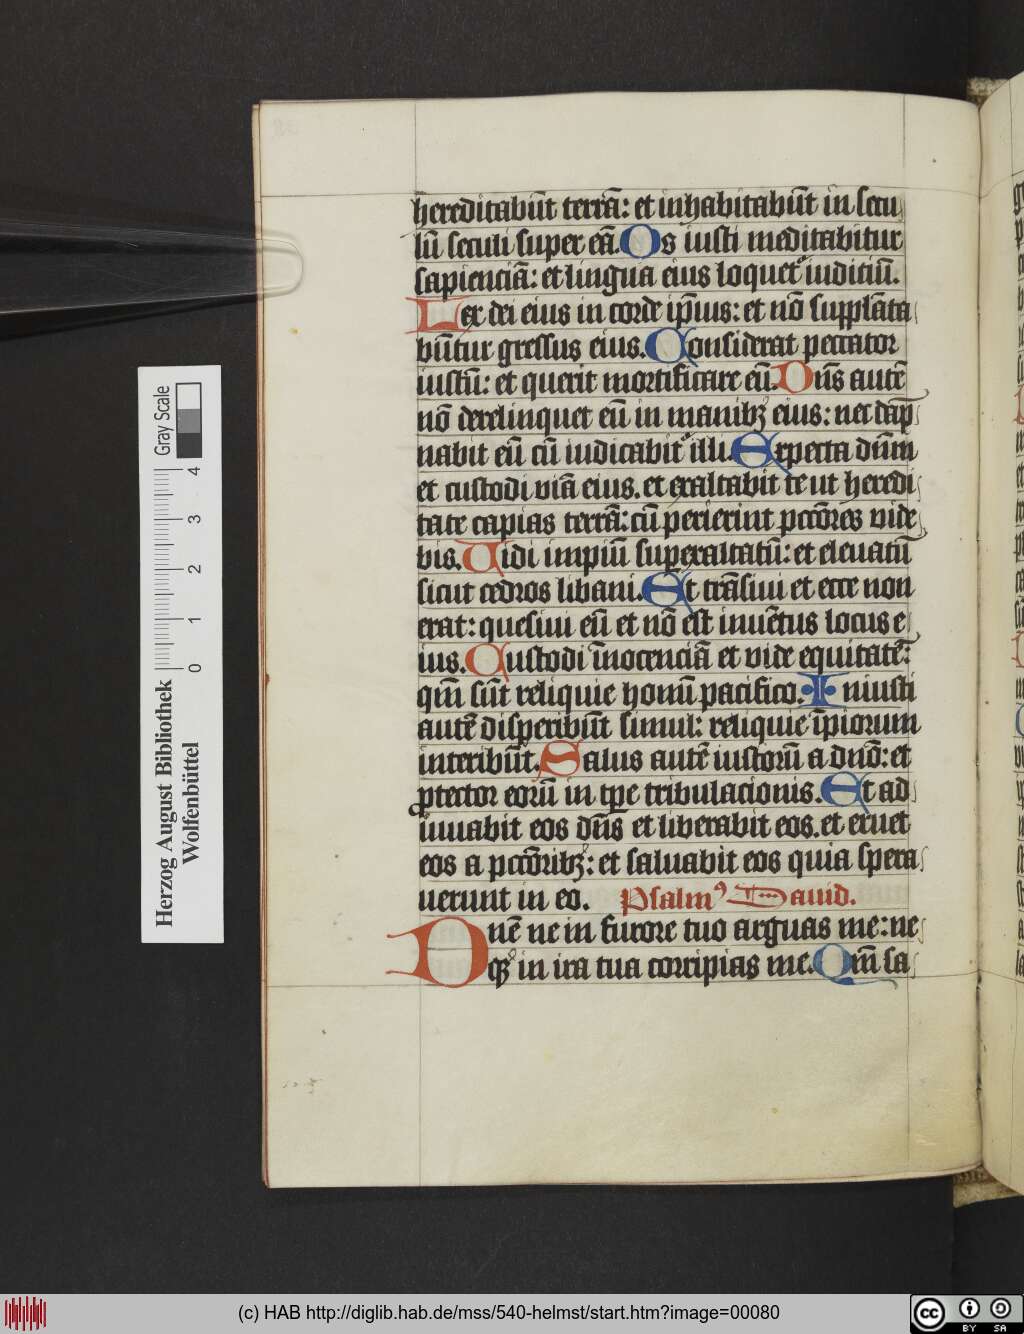 hereditabūt terrā: et inhabitabūt in secu
lū seculi super eā. Os iusti meditabitur
sapienciā: et lingua eius loquet᷑ iuditiū.
Lex dei eius in corde ip̄ius: et nō supplāta
būtur gressus eius. Considerat peccator
iustū: et querit mortificare eū. Dn̄s autē
nō derelinquet eū in manibꝫ eius: nec dāp
nabit eū cū iudicabit᷑ illi. Expecta dn̄m
et custodi viā eius. et exaltabit te ut heredi
tate capias terrā: cū perierint pccōres vide
bis. Vidi impiū superaltatū: et eleuatū
sicut cedros libani. Et trāsiui et ecce non
erat: quesiui eū et nō est inuētus locus e
ius. Custodi īnocenciā et vide equitatē:
qm̄ sūt reliquie homī pacifico. Iniusti
autē disperibūt simul: reliquie īpiorum
interibūt. Salus autē iustorū a dn̄o: et
ꝓtector eorū in tp̄e tribulacionis. Et ad
iuuabit eos dn̄s et liberabit eos. et eruet
eos a pccōribꝫ: et saluabit eos quia spera
uerunt in eo. Psalmꝰ Dauid.
Dn̄e ne in furore tuo arguas me: ne
qꝫ in ira tua corripias me. Qm̄ sa
Gray Scale
0 1 2 3 4
Herzog August Bibliothek
Wolfenbüttel
(c) HAB http://diglib.hab.de/mss/540-helmst/start.htm?image=00080
cc BY SA